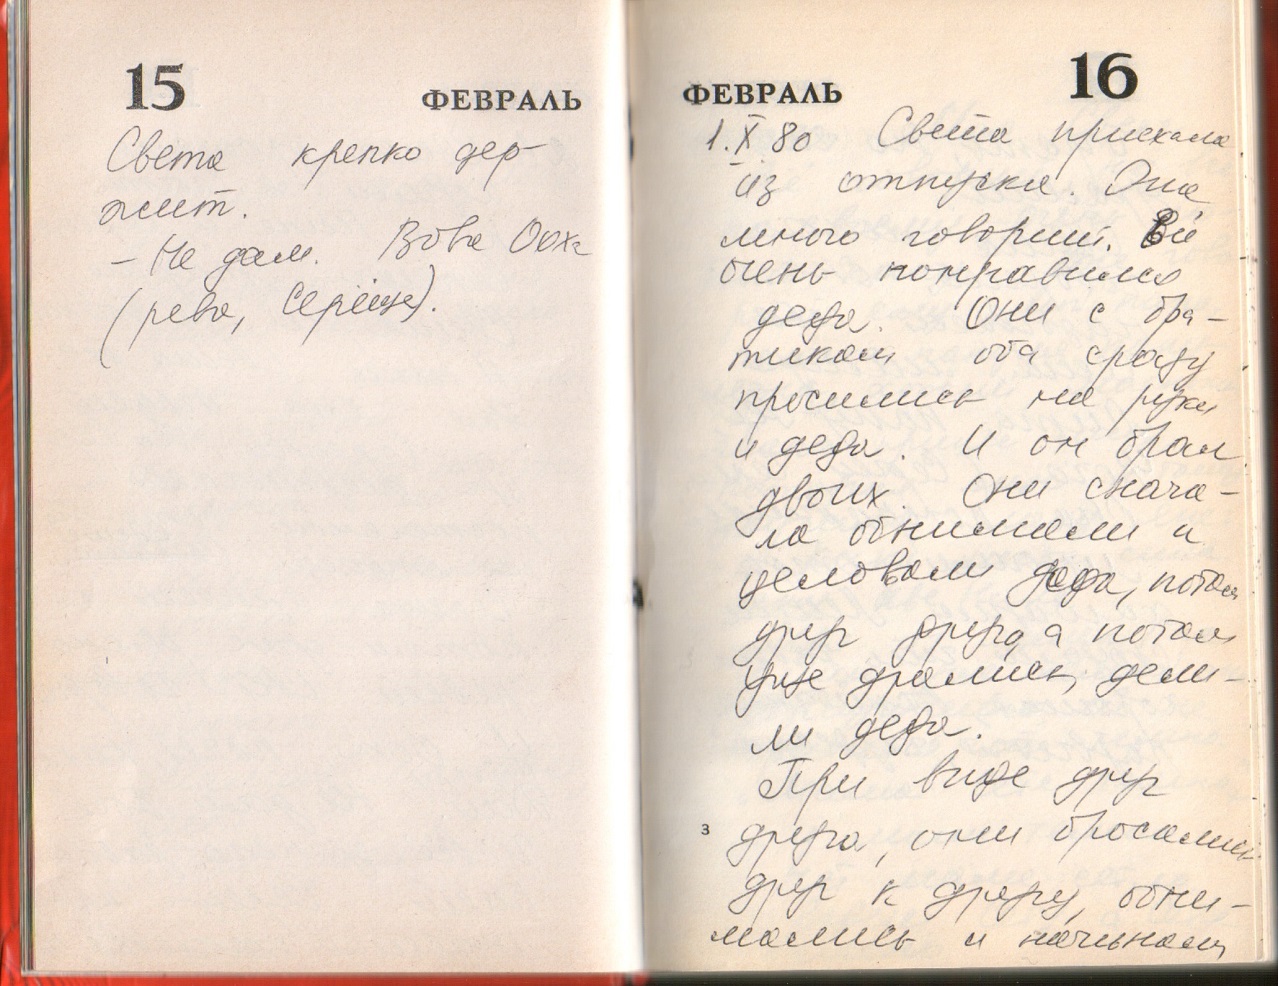 15
ФЕВРАЛЬ
Света крепко дер-
жит.
– Не дам. Вове
(рева, Сереще).
ФЕВРАЛЬ
16
1.X 80 Света приехала
из отпуска. Она
много говорит. Ей
очень понравился
деда. Они с бра-
тиком оба сразу
просились на руки
и деда. И он брал
двоих. Они снача-
ла обнимали и
целовали деда, потом
друг друга, а потом
уже дрались, дели-
ли деда.
При виде друг
3
друга, они бросались
друг к другу, обни-
мались и начинали